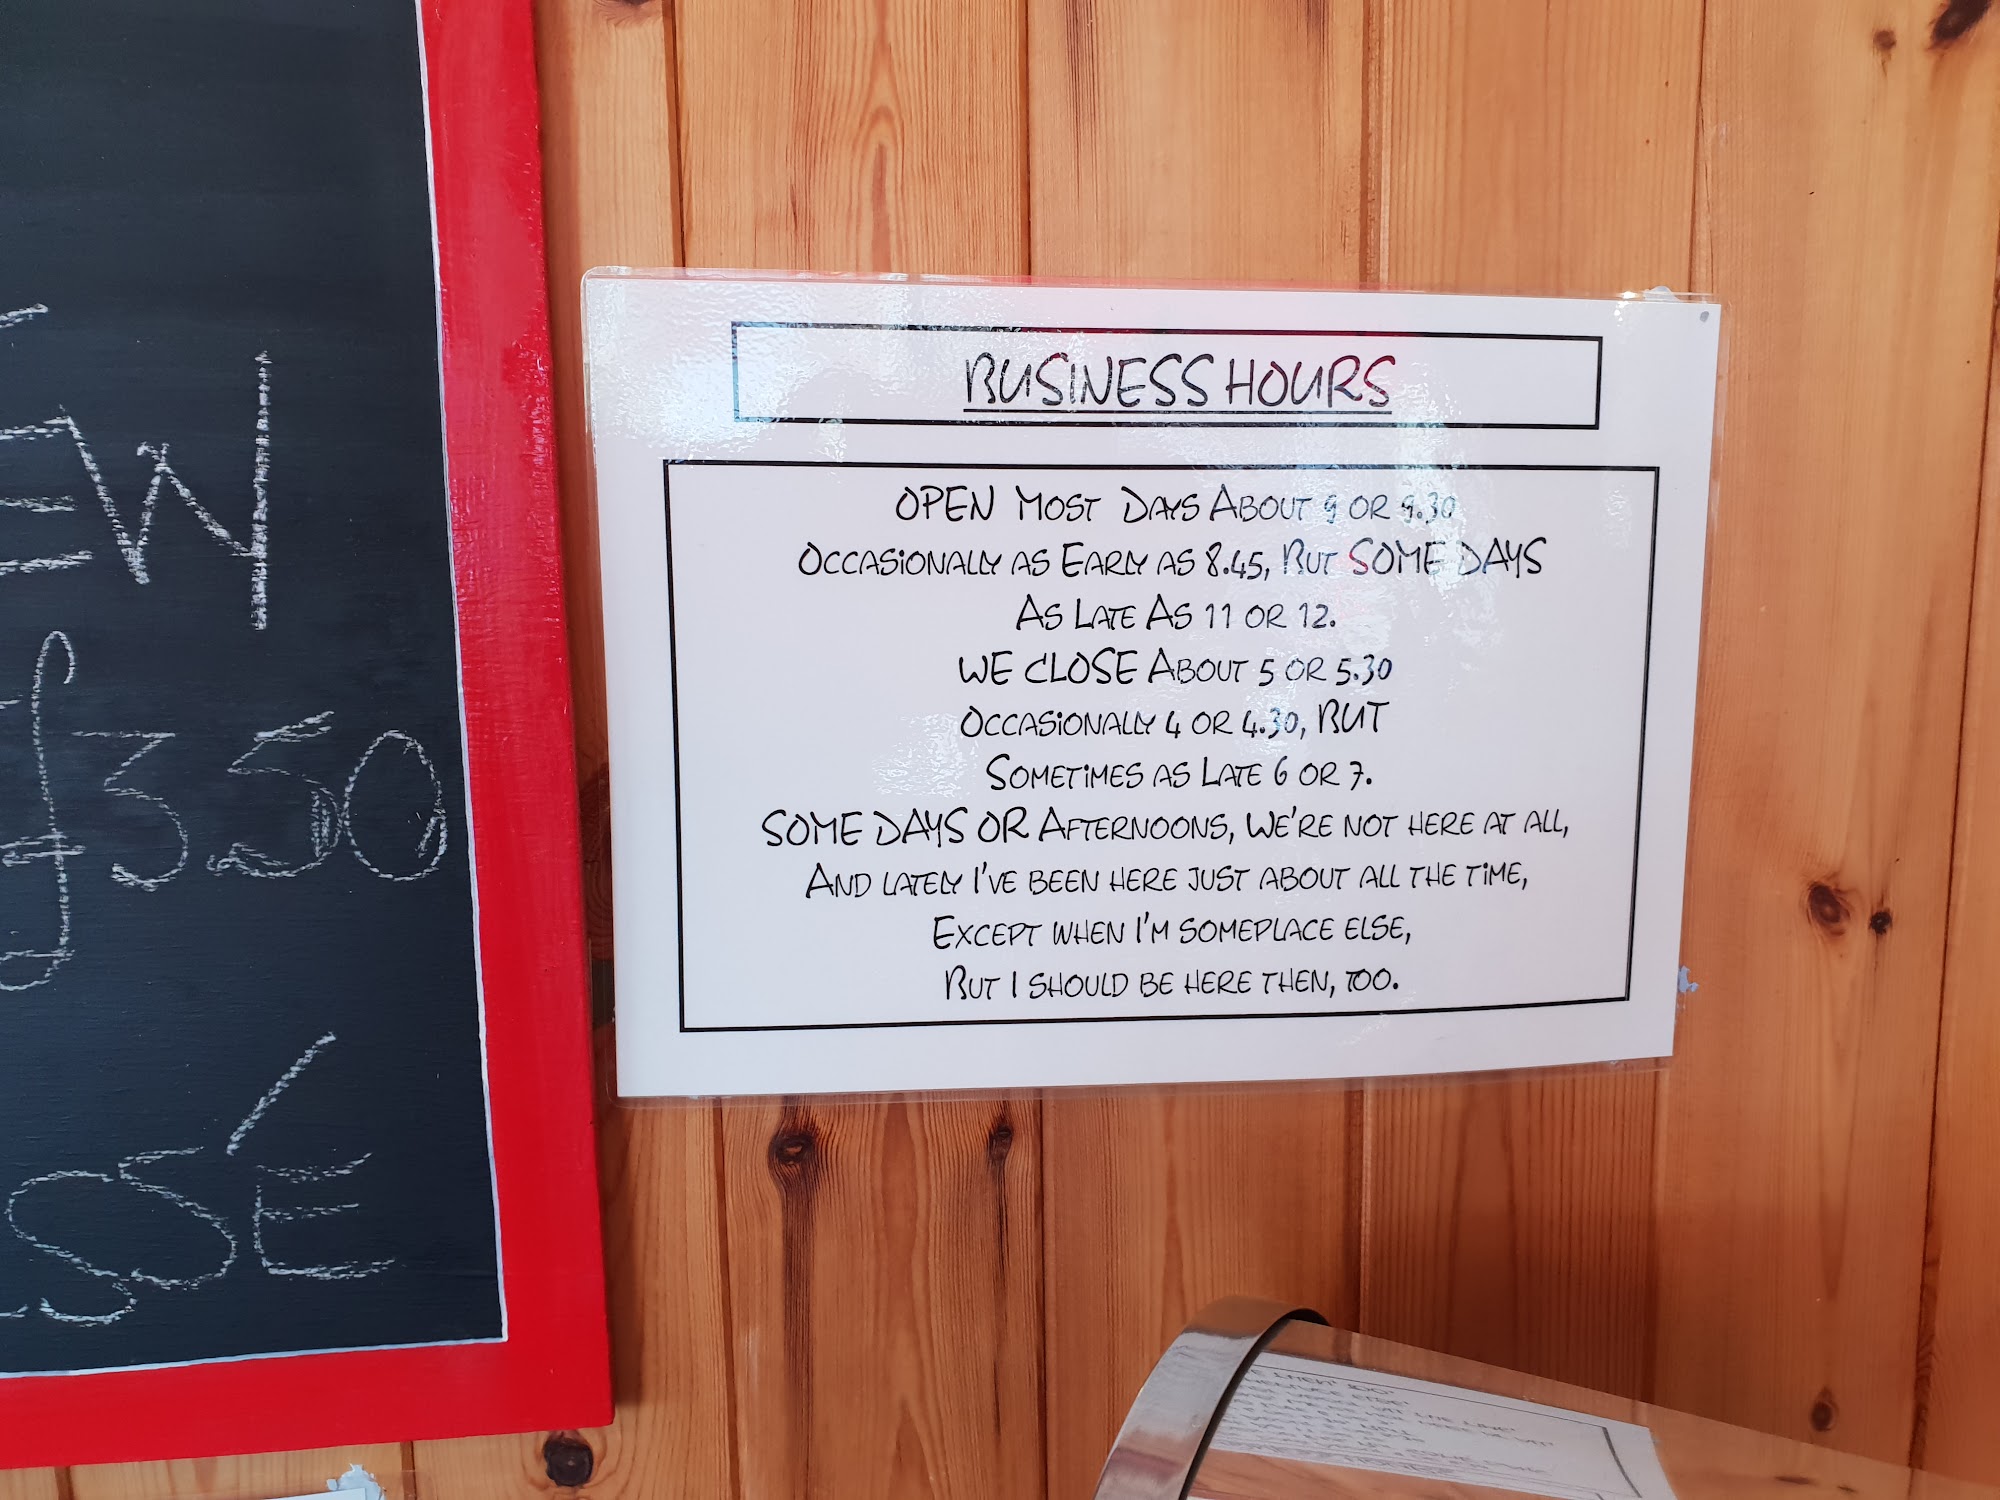 EW
£3.50
BUSINESS HOURS
OPEN MOST DAYS ABOUT 9 OR 9.30
OCCASIONALLY AS EARLY AS 8.45, BUT SOME DAYS
AS LATE AS 11 OR 12.
WE CLOSE ABOUT 5 OR 5.30
OCCASIONALLY 4 OR 4.30, BUT
SOMETIMES AS LATE 6 OR 7.
SOME DAYS OR AFTERNOONS, WE'RE NOT HERE AT ALL,
AND LATELY I'VE BEEN HERE JUST ABOUT ALL THE TIME,
EXCEPT WHEN I'M SOMEPLACE ELSE,
BUT I SHOULD BE HERE THEN, TOO.